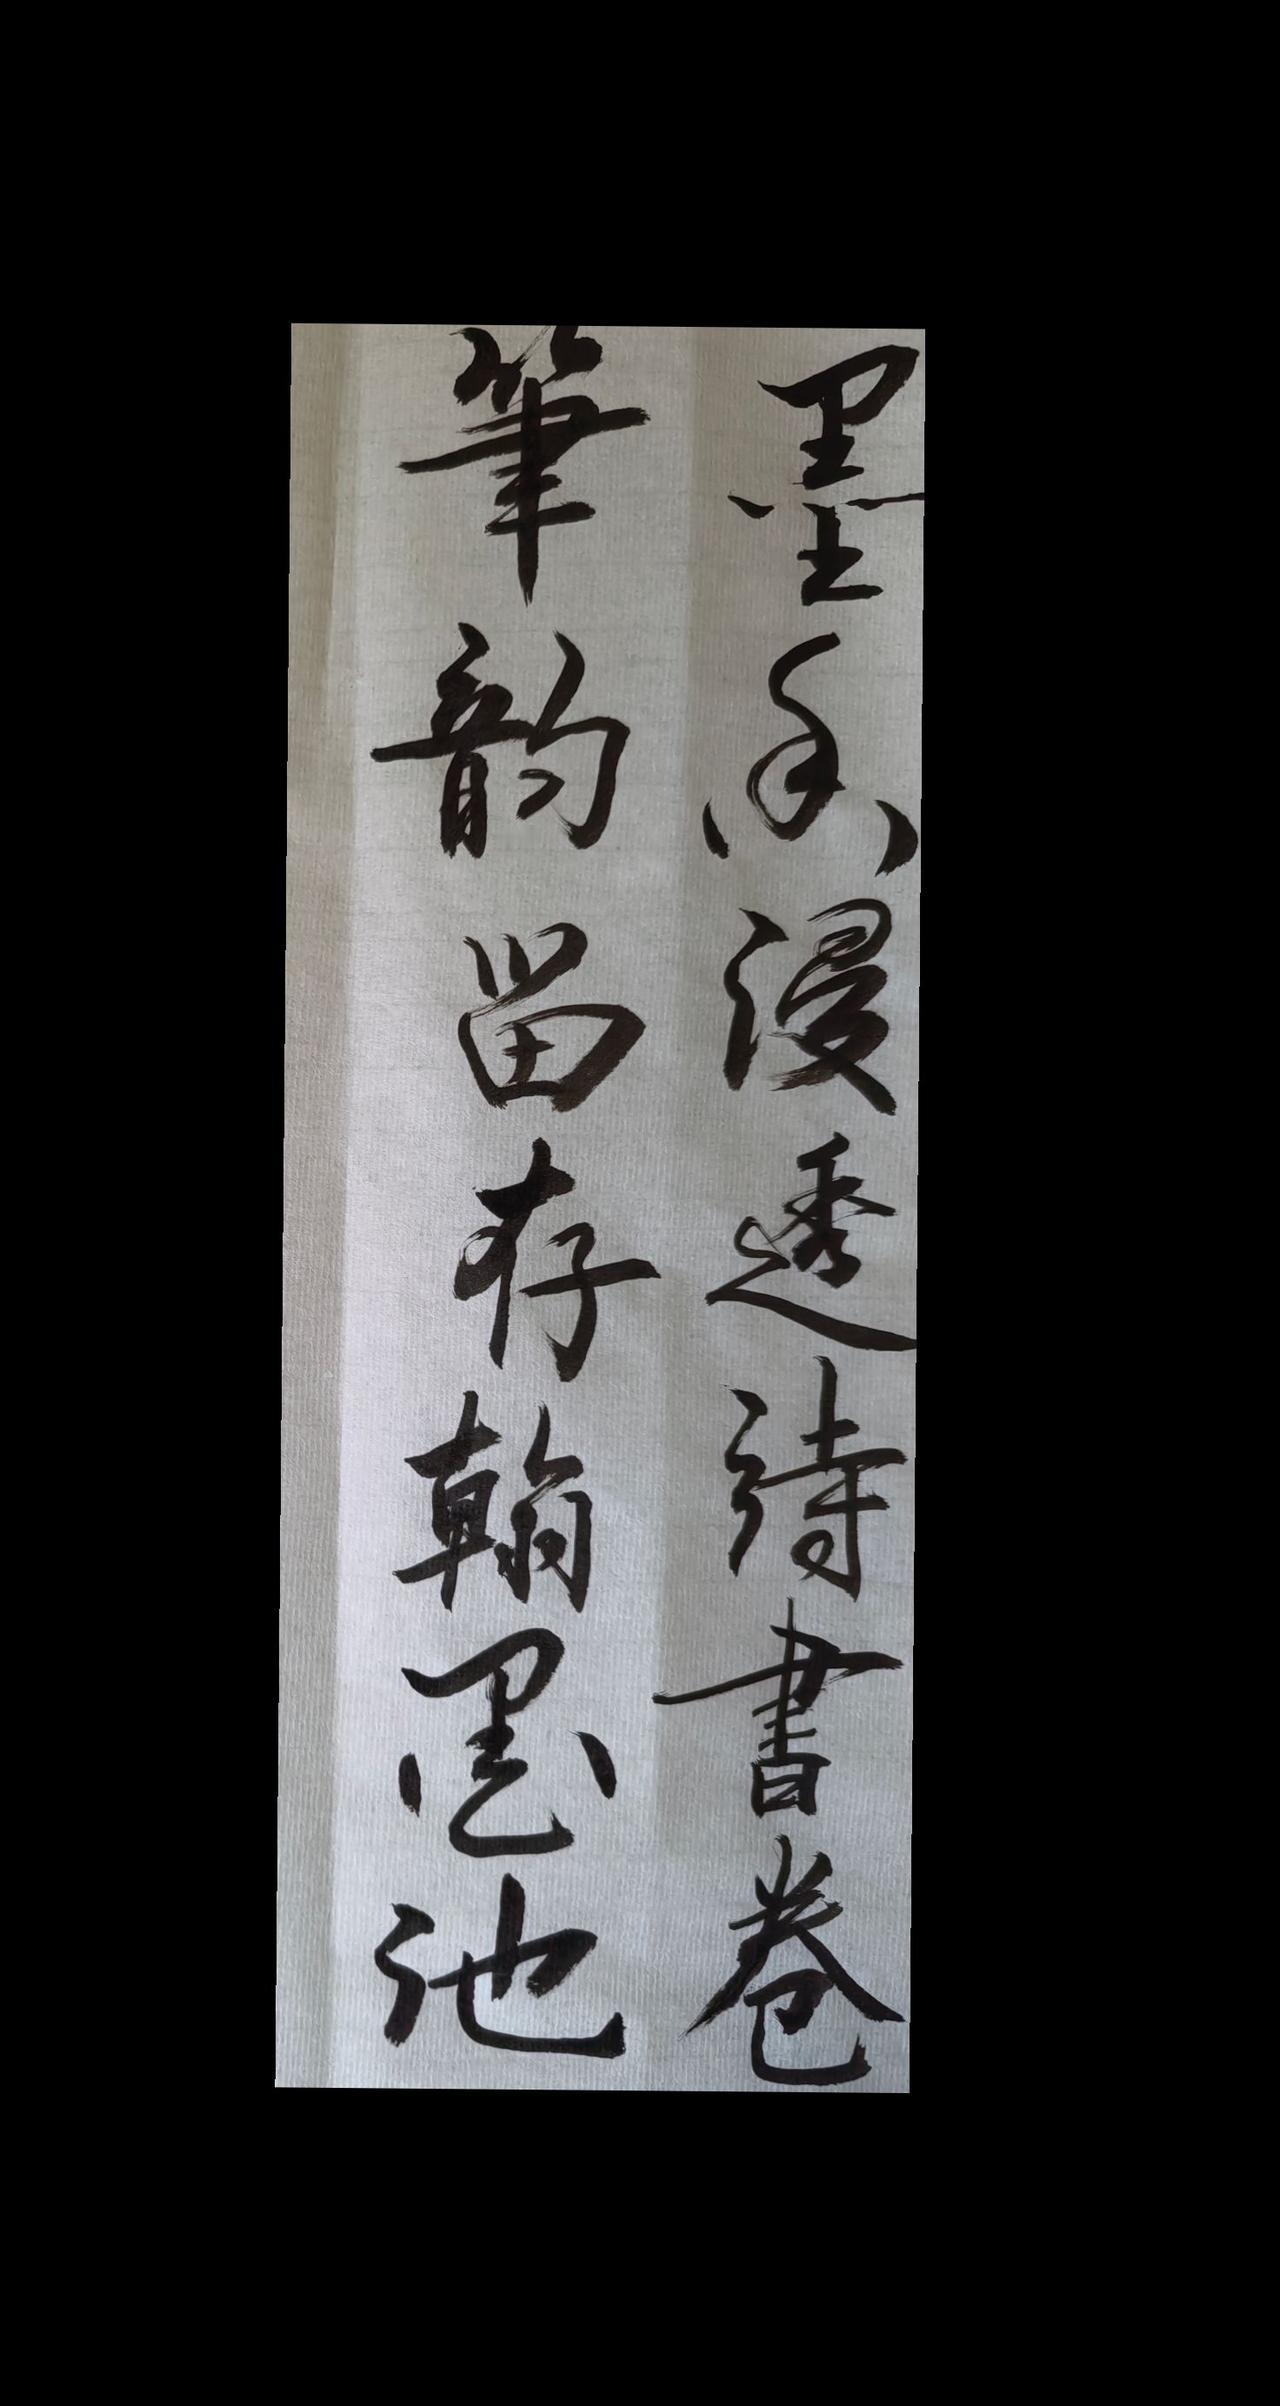 墨香浸透詩書卷
筆韵留存翰墨池